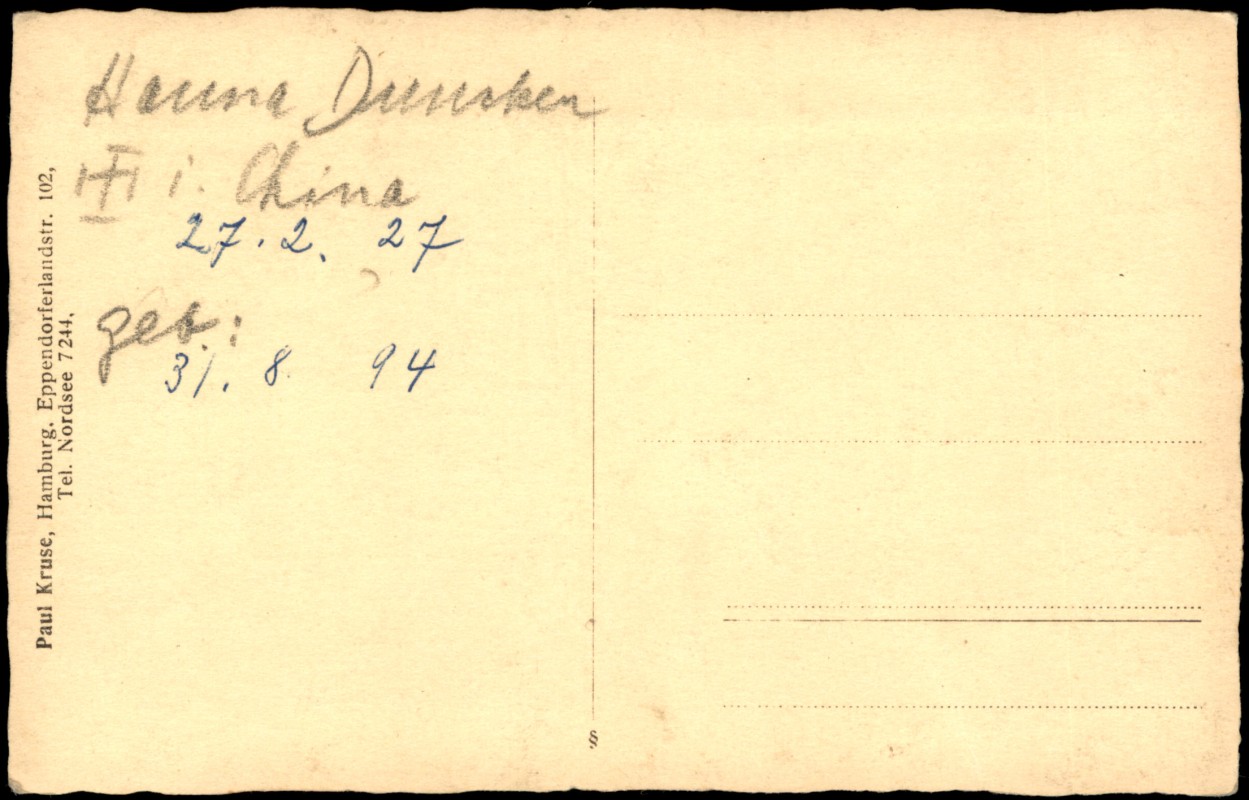 Hanna Dunsken
i. China
27. 2. 27
geb.:
31. 8. 94
Paul Kruse, Hamburg, Eppendorferlandstr. 102,
Tel. Nordsee 7244.
§